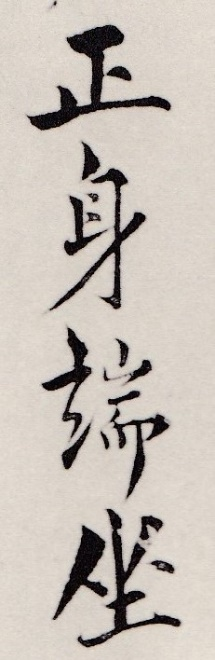 正身端坐